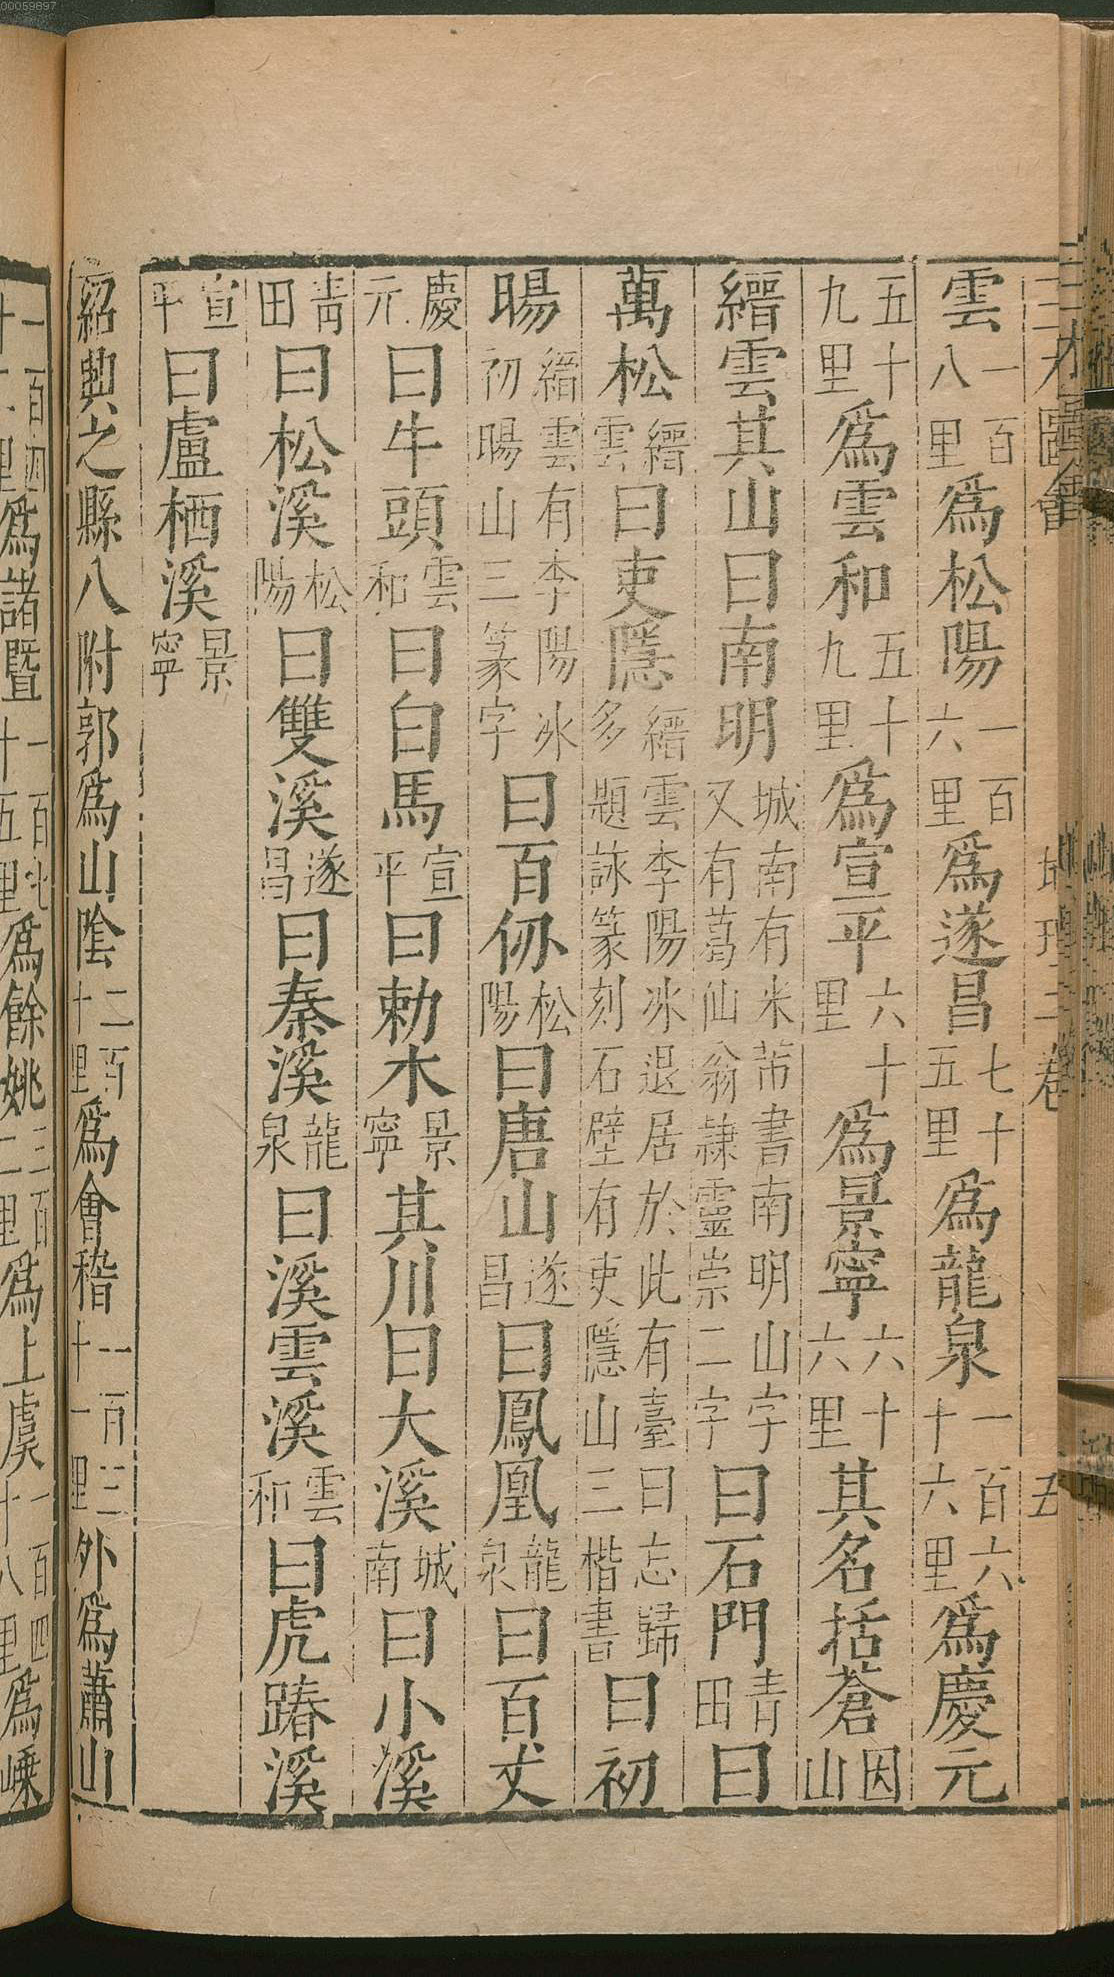 00059897
三才圖會 地理三卷 五
雲一百八里爲松陽一百六里爲遂昌七十五里爲龍泉一百六十六里爲慶元
五十九里爲雲和五十九里爲宣平六十里爲景寧六十六里其名括蒼因山
縉雲其山曰南明城南有米芾書南明山字又有葛仙翁隷靈崇二字曰石門青田曰
萬松縉雲曰吏隱縉雲李陽冰退居於此有臺曰忘歸多題詠篆刻石壁有吏隱山三楷書曰初
暘縉雲有李陽冰初暘山三篆字曰百仞松陽曰唐山遂昌曰鳳凰龍泉曰百丈
慶元曰牛頭雲和曰白馬宣平曰勅木景寧其川曰大溪城南曰小溪
青田曰松溪松陽曰雙溪遂昌曰秦溪龍泉曰溪雲溪雲和曰虎踳溪
宣平曰盧栖溪景寧
紹興之縣八附郭爲山陰二百十里爲會稽一百三十一里外爲蕭山
一百四十一里爲諸暨一百七十五里爲餘姚三百二里爲上虞一百四十八里爲嵊